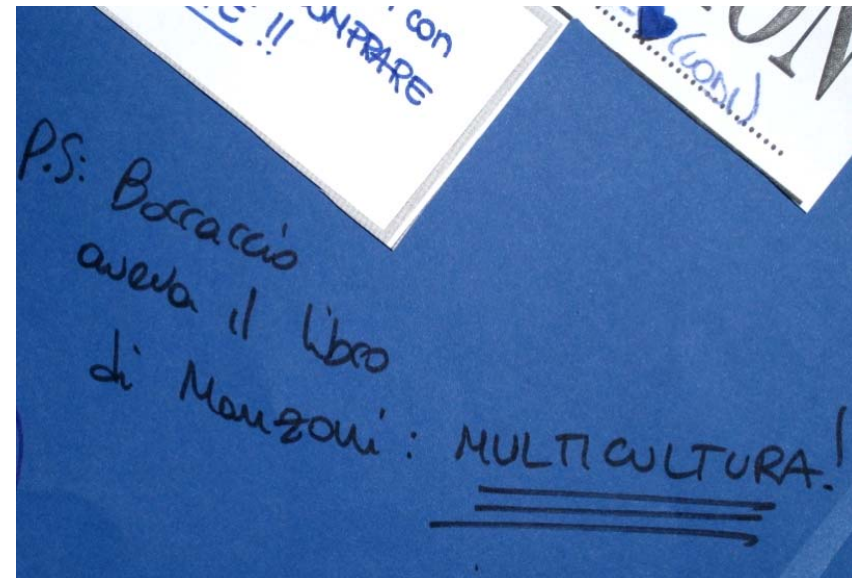 con
COMPRARE
!!
ON
(LODI)
P.S: Boccaccio
aveva il libro
di Manzoni: MULTICULTURA!